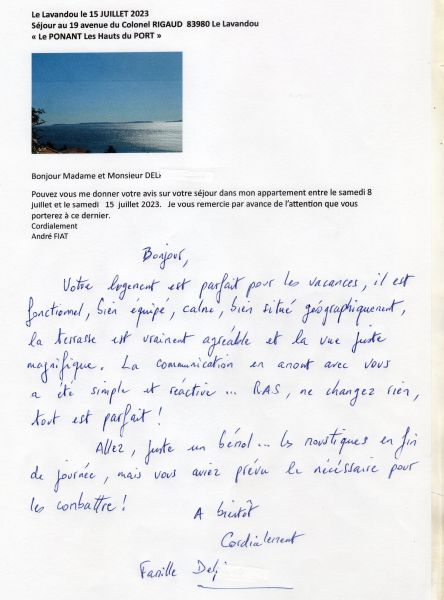 Le Lavandou le 15 JUILLET 2023
Séjour au 19 avenue du Colonel RIGAUD 83980 Le Lavandou
« Le PONANT Les Hauts du PORT »
Bonjour Madame et Monsieur DEL
Pouvez vous me donner votre avis sur votre séjour dans mon appartement entre le samedi 8
juillet et le samedi 15 juillet 2023. Je vous remercie par avance de l'attention que vous
porterez à ce dernier.
Cordialement
André FIAT
Bonjour,
Votre logement est parfait pour les vacances, il est
fonctionnel, bien équipé, calme, bien situé géographiquement,
la terrasse est vraiment agréable et la vue juste
magnifique. La communication en amont avec vous
a été simple et réactive ... RAS, ne changez rien,
tout est parfait !
Allez, juste un bémol... les moustiques en fin
de journée, mais vous aviez prévu le nécessaire pour
les combattre !
A bientôt
Cordialement
Famille Delj